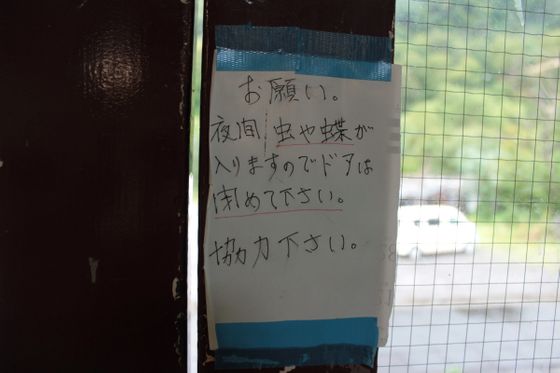 お願い。
夜間 虫や蝶が
入りますのでドアは
閉めて下さい。
協力下さい。